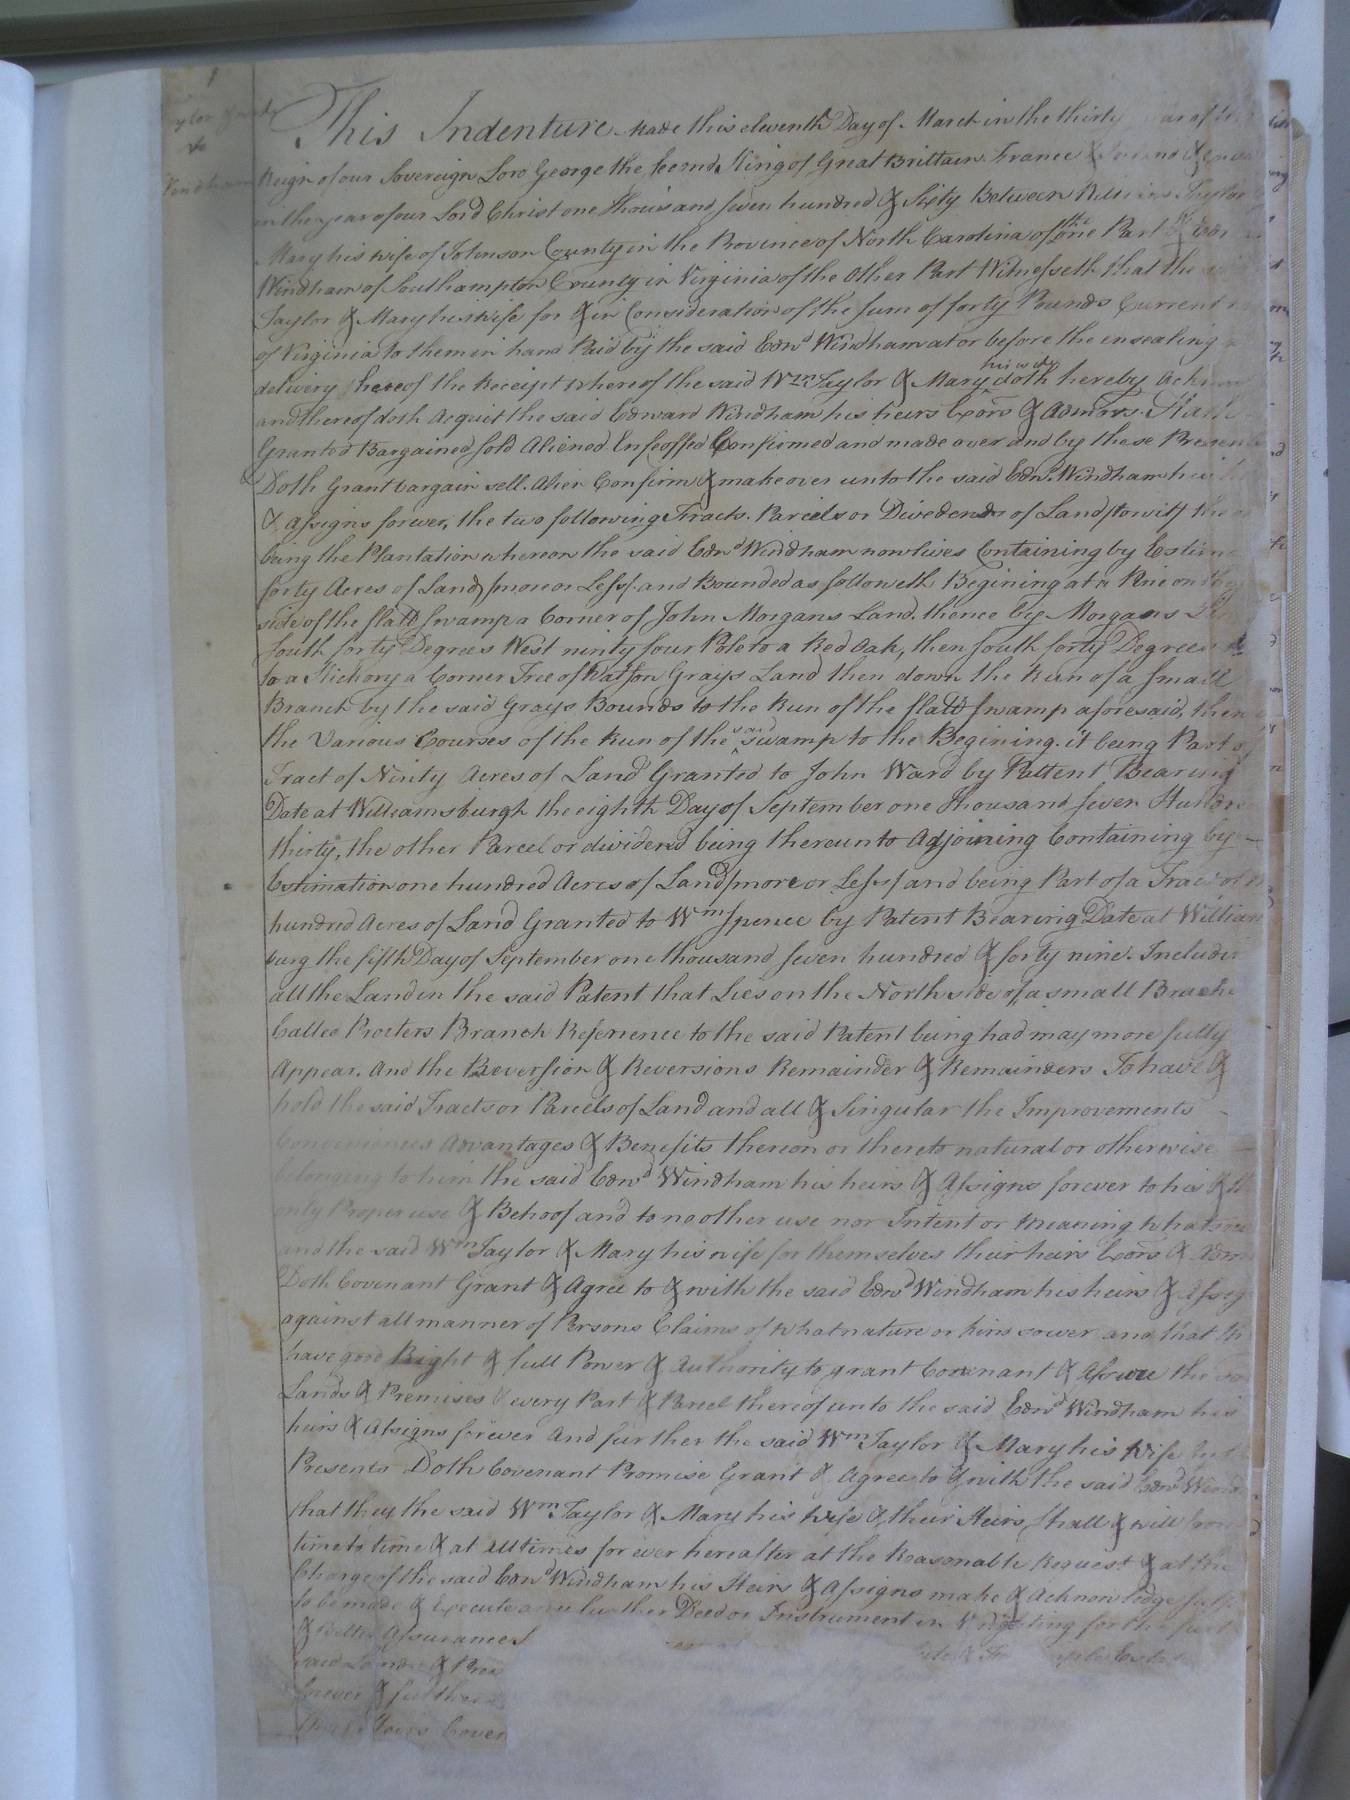 1
This Indenture Made this eleventh Day of March in the thirty
Windham Reign of our Sovereign Lord George the Second King of Great Brittain France &
in the year of our Lord Christ one thousand seven hundred & Sixty Between Taylor
Mary his wife of Johnson County in the Province of North Carolina of the one Part &
Windham of Southampton County in Virginia of the Other Part Witnesseth that the
Taylor & Mary his wife for & in Consideration of the sum of forty Pounds Current
of Virginia to them in hand Paid by the said Edwd Windham at or before the ensealing
delivery hereof the Receipt whereof the said Wm Taylor & Mary his wife doth hereby
and thereof doth Acquit the said Edward Windham his heirs Exors & Admrs. Hath
Granted Bargained Sold Aliened Enfeoffed Confirmed and made over and by these Presents
Doth Grant bargain sell Alien Confirm & make over unto the said Edwd Windham his
& assigns forever, the two following Tracts Parcels or Dividends of Land to wit the
being the Plantation whereon the said Edwd Windham now lives Containing by
forty Acres of Land more or Less and Bounded as followeth Begining at a Pine on
side of the flatt Swamp a Corner of John Morgans Land. thence by Morgans
South forty Degrees West ninty four Pole to a Red Oak, then South forty Degrees
to a Hickory a Corner Tree of Watson Grays Land then down the Run of a small
Branch by the said Grays Bounds to the Run of the flatt Swamp aforesaid, then
the Various Courses of the Run of the said Swamp to the Begining. it being Part
Tract of Ninty Acres of Land Granted to John Ward by Pattent Bearing
Date at Williamsburgh the eighth Day of September one thousand seven Hundred
thirty, the other Parcel or dividend being thereunto Adjoining Containing by
Estimation one hundred Acres of Land more or Less and being Part of a Tract of
hundred Acres of Land Granted to Wm Spence by Patent Bearing Date at William
burg the fifth Day of September one thousand seven hundred & forty nine. Includin
all the Land in the said Patent that Lies on the North side of a small Branch
Called Procters Branch Referrence to the said Patent being had may more fully
Appear. And the Reversion & Reversions Remainder & Remainders To have &
hold the said Tracts or Parcels of Land and all & Singular the Improvements
Conveniences Advantages & Benefits thereon or thereto natural or otherwise
belonging to him the said Edwd Windham his heirs & Assigns forever to his &
only Proper use & Behoof and to no other use nor Intent or Meaning whatsoe
and the said Wm Taylor & Mary his wife for themselves their heirs Exors & Adm
Doth Covenant Grant & Agree to & with the said Edwd Windham his heirs & Assig
against all manner of Persons Claims of what nature or kind soever and that th
have good Right & full Power & Authority to grant Covenant & Assure the
Lands & Premises & every Part & Parcel thereof unto the said Edwd Windham his
heirs & Assigns forever And further the said Wm Taylor & Mary his Wife
Presents Doth Covenant Promise Grant & Agree to & with the said Edwd Wind
that they the said Wm Taylor & Mary his Wife & their Heirs shall & will from
time to time & at all times forever hereafter at the Reasonable Request & at the
Charge of the said Edwd Windham his Heirs & Assigns make & Acknowledge
to be made & Execute any further Deed or Instrument in Writing for the
& Better Assurance
said Lands & Pre
forever & further
Heirs Coven